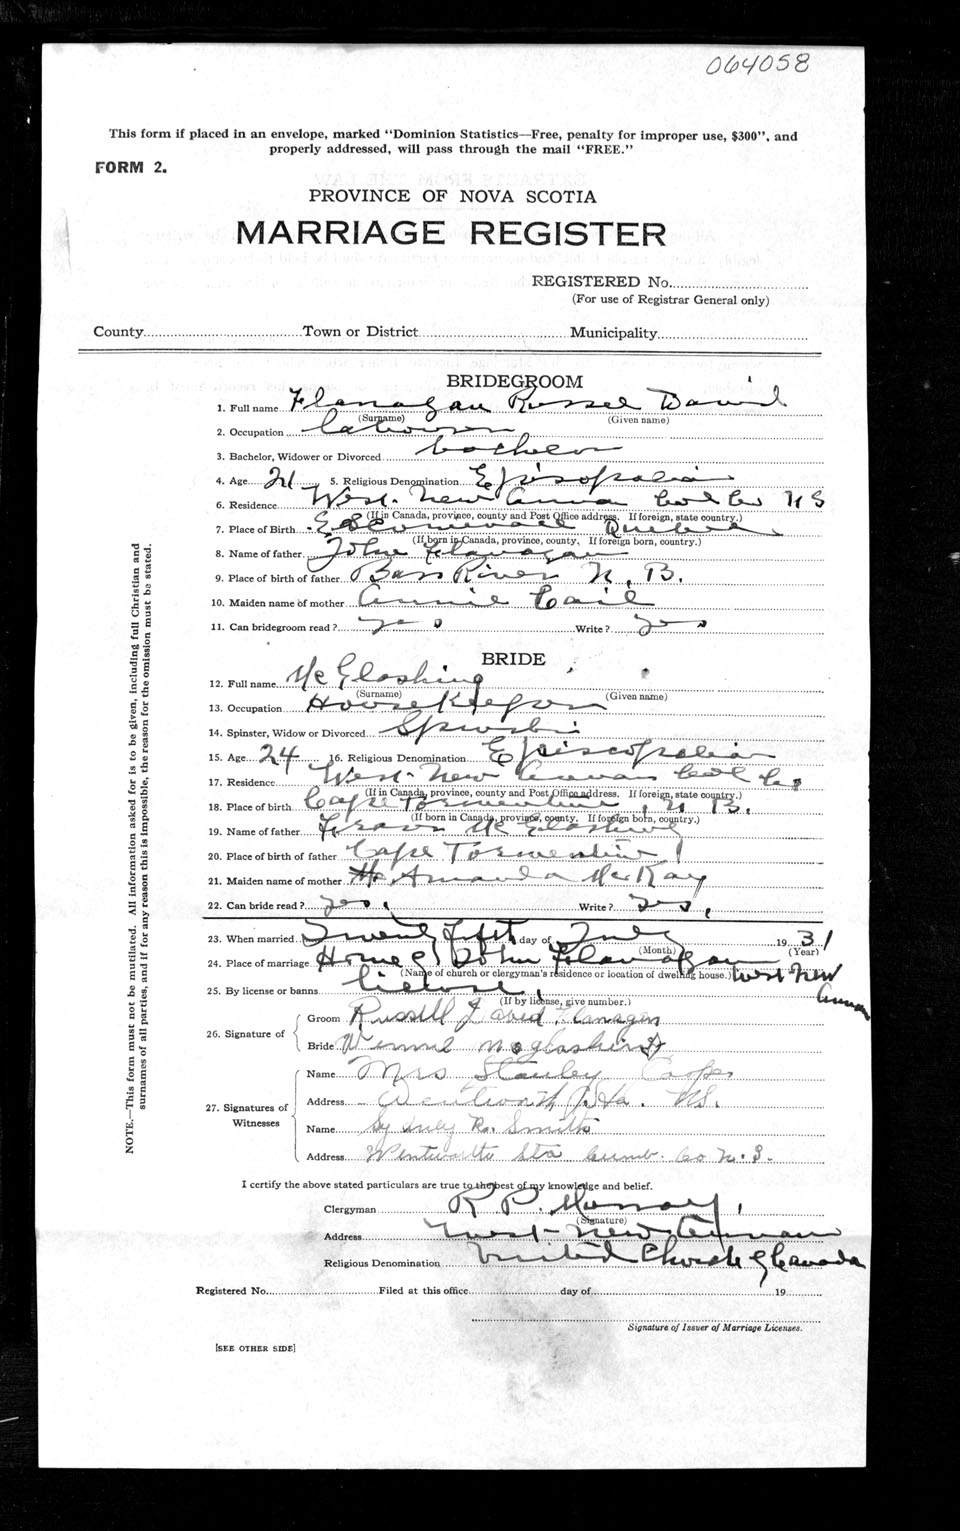 064058
This form if placed in an envelope, marked "Dominion Statistics—Free, penalty for improper use, $300", and
properly addressed, will pass through the mail "FREE."
FORM 2.
PROVINCE OF NOVA SCOTIA
MARRIAGE REGISTER
REGISTERED No.
(For use of Registrar General only)
County Town or District Municipality
BRIDEGROOM
1. Full name Flanagan Russel David
(Surname) (Given name)
2. Occupation Labourer
3. Bachelor, Widower or Divorced bachelor
4. Age 21 5. Religious Denomination Episcopalian
6. Residence West New Annan Col Co N S
(If in Canada, province, county and Post Office address. If foreign, state country.)
7. Place of Birth Quebec
(If born in Canada, province, county. If foreign born, country.)
8. Name of father John Flanagan
9. Place of birth of father Bass River N. B.
10. Maiden name of mother Annie Cail
11. Can bridegroom read? yes Write? yes
BRIDE
12. Full name
(Surname) (Given name)
13. Occupation Housekeeper
14. Spinster, Widow or Divorced Spinster
15. Age 24 16. Religious Denomination Episcopalian
17. Residence West New Annan Col Co
(If in Canada, province, county and Post Office address. If foreign, state country.)
18. Place of birth Cape Tormentine, N. B.
(If born in Canada, province, county. If foreign born, country.)
19. Name of father
20. Place of birth of father Cape Tormentine
21. Maiden name of mother Amanda McKay
22. Can bride read? yes, Write? yes,
23. When married Twenty fifth day of July 1931
(Month) (Year)
24. Place of marriage Home of John Flanagan West New Annan
(Name of church or clergyman's residence or location of dwelling house.)
25. By license or banns license
(If by license, give number.)
26. Signature of
Groom Russell David Flanagan
Bride
27. Signatures of Witnesses
Name Mrs Stanley Cooper
Address Wentworth Sta. N.S.
Name R. Smith
Address Wentworth Sta Cumb. Co N.S.
I certify the above stated particulars are true to the best of my knowledge and belief.
Clergyman R P. Murray
(Signature)
Address West New Annan
Religious Denomination United Church of Canada
Registered No. Filed at this office day of 19
Signature of Issuer of Marriage Licenses.
[SEE OTHER SIDE]
NOTE.—This form must not be mutilated. All information asked for is to be given, including full Christian and
surnames of all parties, and if for any reason this is impossible, the reason for the omission must be stated.